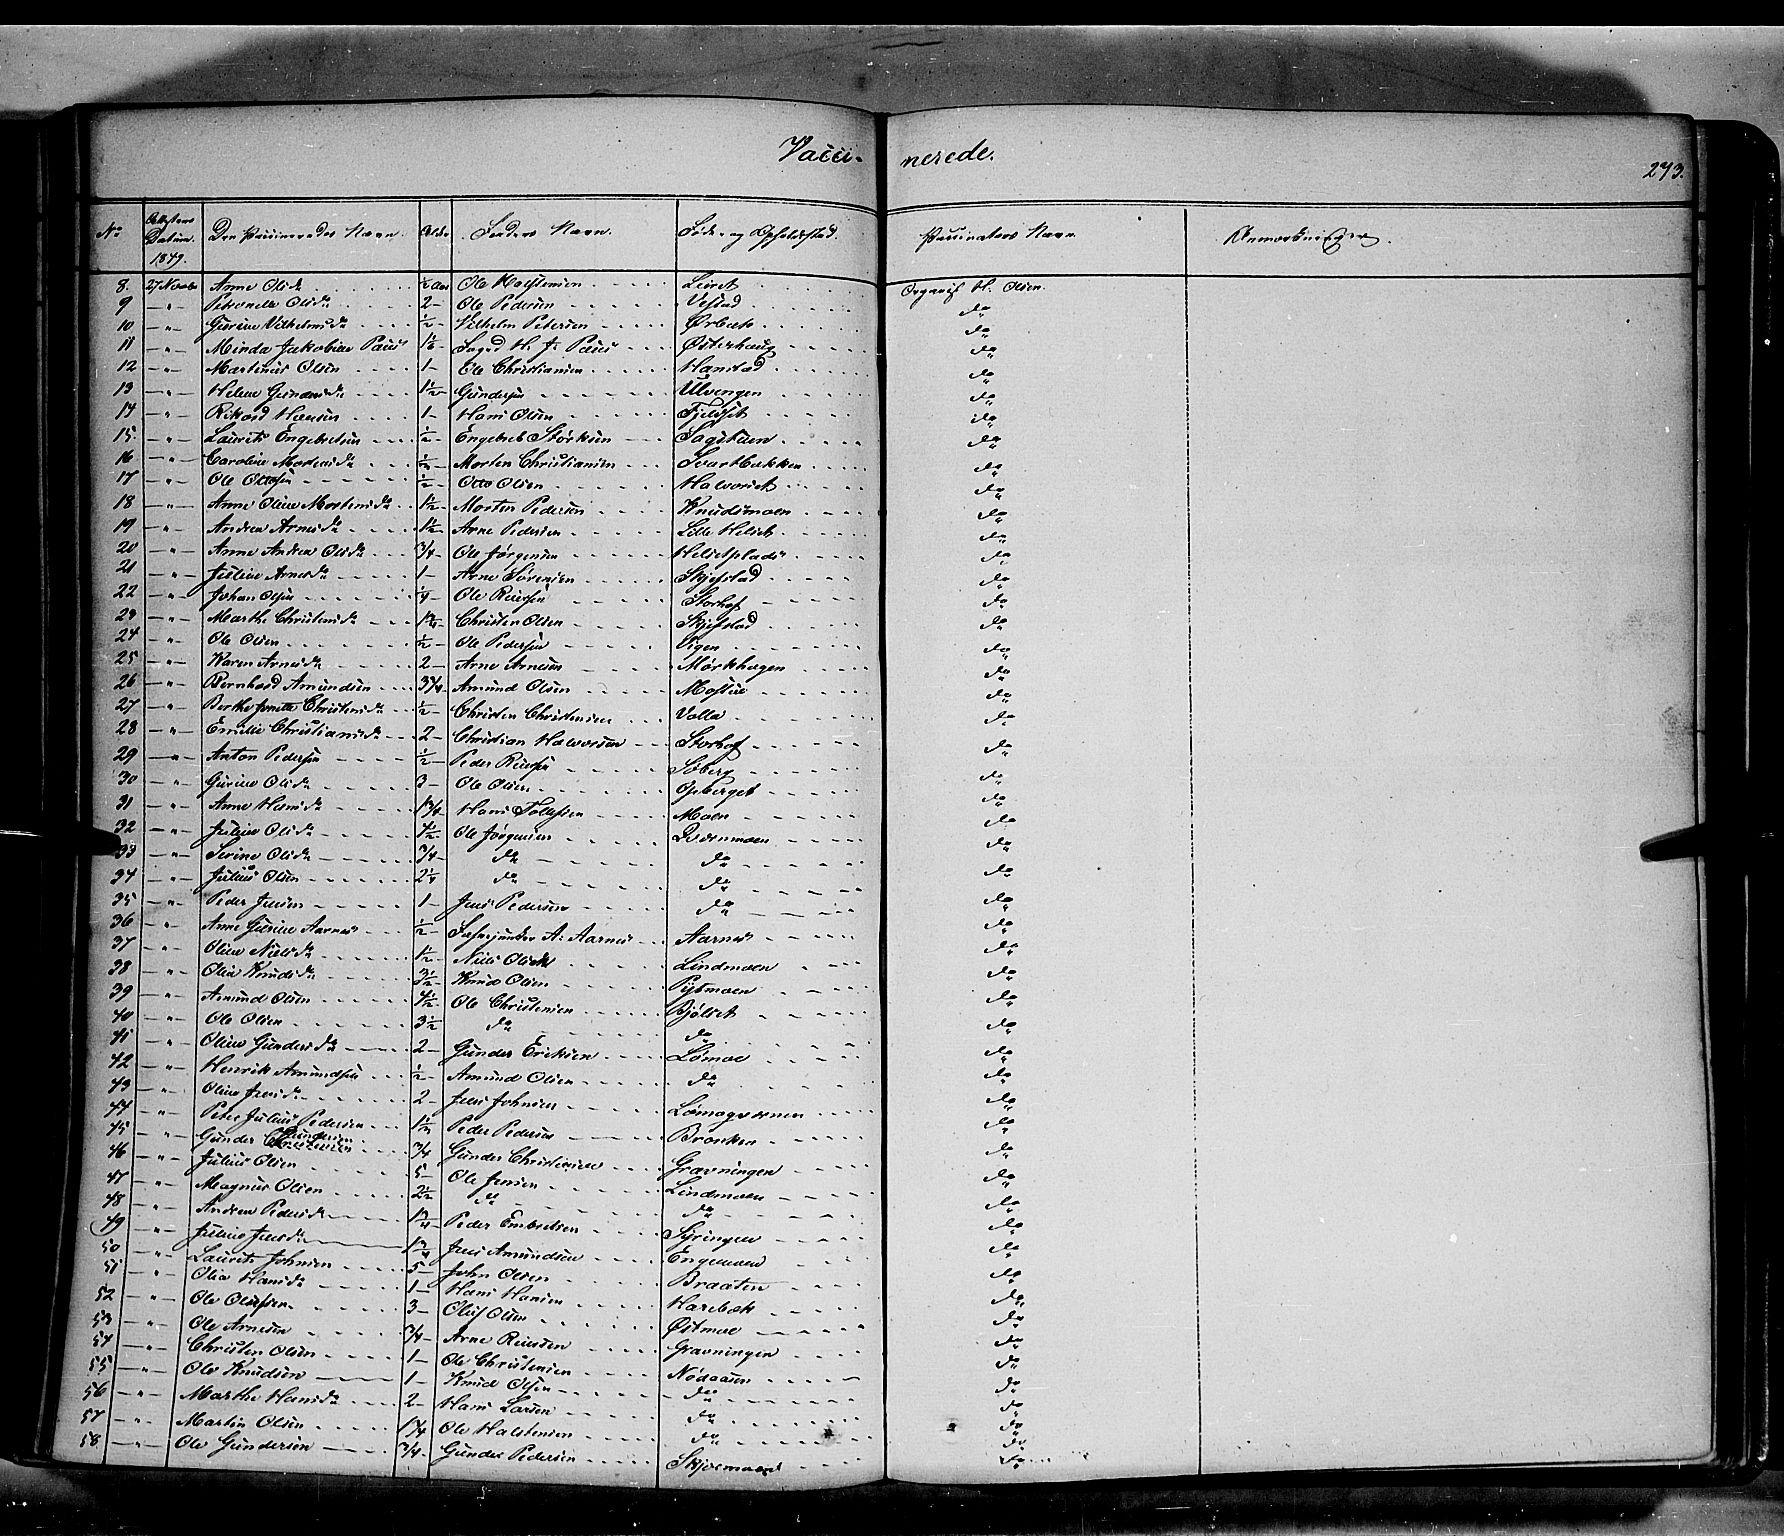 Vacci- nerede.
273.
No Attestens Datum. 1849. Den Vaccineredes Navn. Alder Faders Navn. Føde- og Opholdsted. Vaccinateurs Navn Anmærkninger.
8. 27 Novbr Anne Olsdr ½ Aar Ole Halstensen Leiret Organist H. Olsen.
9 — " — Petronelle Olsdr 2 — Ole Pedersen Vestad do
10 — " — Gurine Vilhelmsdr ½ — Vilhelm Petersen Ørbæk do
11 — " — Minda Jakobine Paus H. J. Paus Østerhaug do
12 — " — Martinus Olsen 1 — Ole Christiansen Hanstad do
13 — " — Helene Gundersdr 1½ — Gundersen Ulvengen do
14 — " — Rikard Hansen 1 — Hans Olsen Fjeldset do
15. — " — Laurits Engebretsen ½ — Engebret Størksen Sagstuen do
16 — " — Caroline Mortensdr ½ — Morten Christiansen Svartbækken do
17 — " — Ole Ottosen ½ — Otto Olsen Halvorset do
18 — " — Anne Oline Mortensdr 1½ — Morten Pedersen Knudsmoen do
19 — " — Andrea Arnesdr 1½ — Arne Pedersen Lille Helset do
20 — " — Anne Andrea Olsdr 3/4 — Ole Jørgensen Helsetplads do
21 — " — Juline Arnesdr 1 — Arne Sørensen Skjefstad do
22 — " — Johan Olsen ¼ — Ole Reiersen Storhof do
23 — " — Marthe Christensdr 1½ — Christen Olsen Skjefstad do
24 — " — Ole Olsen ½ — Ole Pedersen Vigen do
25 — " — Karen Arnesdr 2 — Arne Arnesen Mørkhagen do
26 — " — Bernhard Amundsen 3¾ Amund Olsen Mostue do
27 — " — Berthe Jonette Christensdr ½ — Christen Christensen Volla do
28 — " — Emilie Christiansdr 2 — Christian Halvorsen Storhof do
29 — " — Anton Pedersen ½ — Peder Reiersen Søberg do
30 — " — Gurine Olsdr 3 — Ole Olsen Opberget do
31 — " — Anne Hansdr 1¾ — Hans Tollefsen Moen do
32 — " — Juline Olsdr 4½ — Ole Jørgensen Qvernmoen do
33 — " — Serine Olsdr 3/4 — do do do
34 — " — Julius Olsen 2¼ do do do
35 — " — Peder Jensen 1 — Jens Pedersen do do
36 — " — Anne Gurine Aarnes ½ — A. Aarnes Aarnes do
37 — " — Oline Nilsdr 1½ Nils Lindmoen do
38 — " — Olia Knudsdr 3½ Knud Olsen Pytmoen do
39 — " — Amund Olsen 4½ Ole Christensen Bjølset do
40 — " — Ole Olsen 3½ do do do
41 — " — Oline Gundersdr 2 — Gunder Eriksen Lømoe do
42 — " — Henrik Amundsen ½ — Amund Olsen do do
43 — " — Oline Jensdr 2 — Jens Johnsen do
44 — " — Peter Julius Pedersen 1½ Peder Pedersen Bronken do
45 — " — Gunder Gundersen 3/4 Gunder Christiansen Grævningen do
46 — " — Julius Olsen 5 — Ole Jensen Lindmoen do
47 — " — Magnus Olsen 2½ do do do
48 — " — Andrea Pedersdr 1¾ Peder Embretsen Syringen do
49 — " — Juline Jensdr 1¾ Jens Amundsen Engemoen do
50 — " — Laurits Johnsen 5 — John Olsen Braaten do
51 — " — Olia Hansdr 1 — Hans Hansen Harebæk do
52 — " — Ole Olufsen 3 — Oluf Olsen Østmoe do
53 — " — Ole Arnesen 3/4 — Arne Reiersen Grævningen do
54 — " — Christen Olsen 1 — Ole Christensen Nødaasen do
55 — " — Ole Knudsen 1 — Knud Olsen do do
56 — " — Marthe Hansdr 2 — Hans Larsen do do
57 — " — Martin Olsen 1¼ Ole Halstensen do do
58 — " — Ole Gundersen 3/4 — Gunder Pedersen do